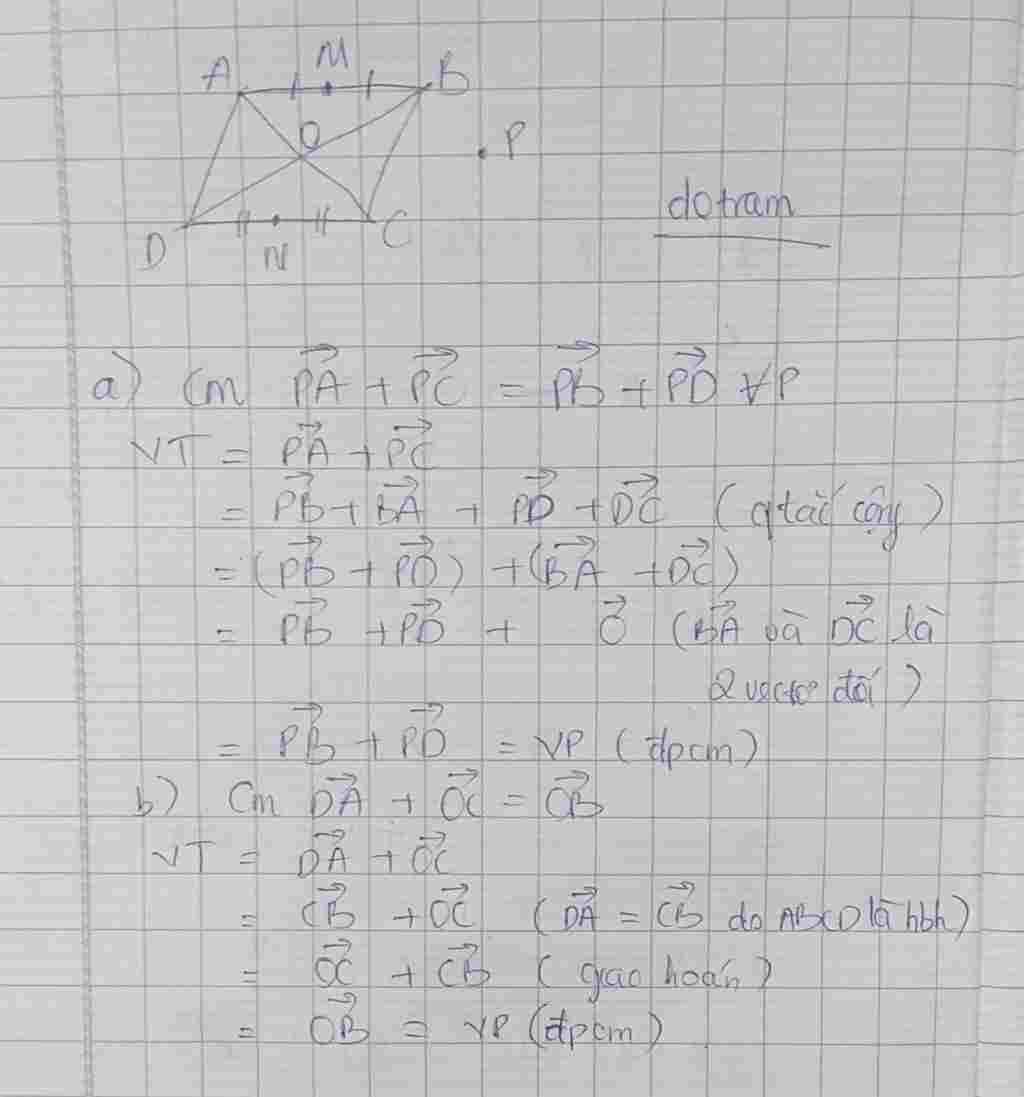 A M B
O
P
dotram
D N C
a) Cm PA⃗ + PC⃗ = PB⃗ + PD⃗ ∀P
VT = PA⃗ + PC⃗
= PB⃗ + BA⃗ + PD⃗ + DC⃗ (qtắc cộng)
= (PB⃗ + PD⃗) + (BA⃗ + DC⃗)
= PB⃗ + PD⃗ + 0⃗ (BA⃗ và DC⃗ là
2 vectơ đối)
= PB⃗ + PD⃗ = VP (đpcm)
b) Cm DA⃗ + OC⃗ = OB⃗
VT = DA⃗ + OC⃗
= CB⃗ + OC⃗ (DA⃗ = CB⃗ do ABCD là hbh)
= OC⃗ + CB⃗ (giao hoán)
= OB⃗ = VP (đpcm)